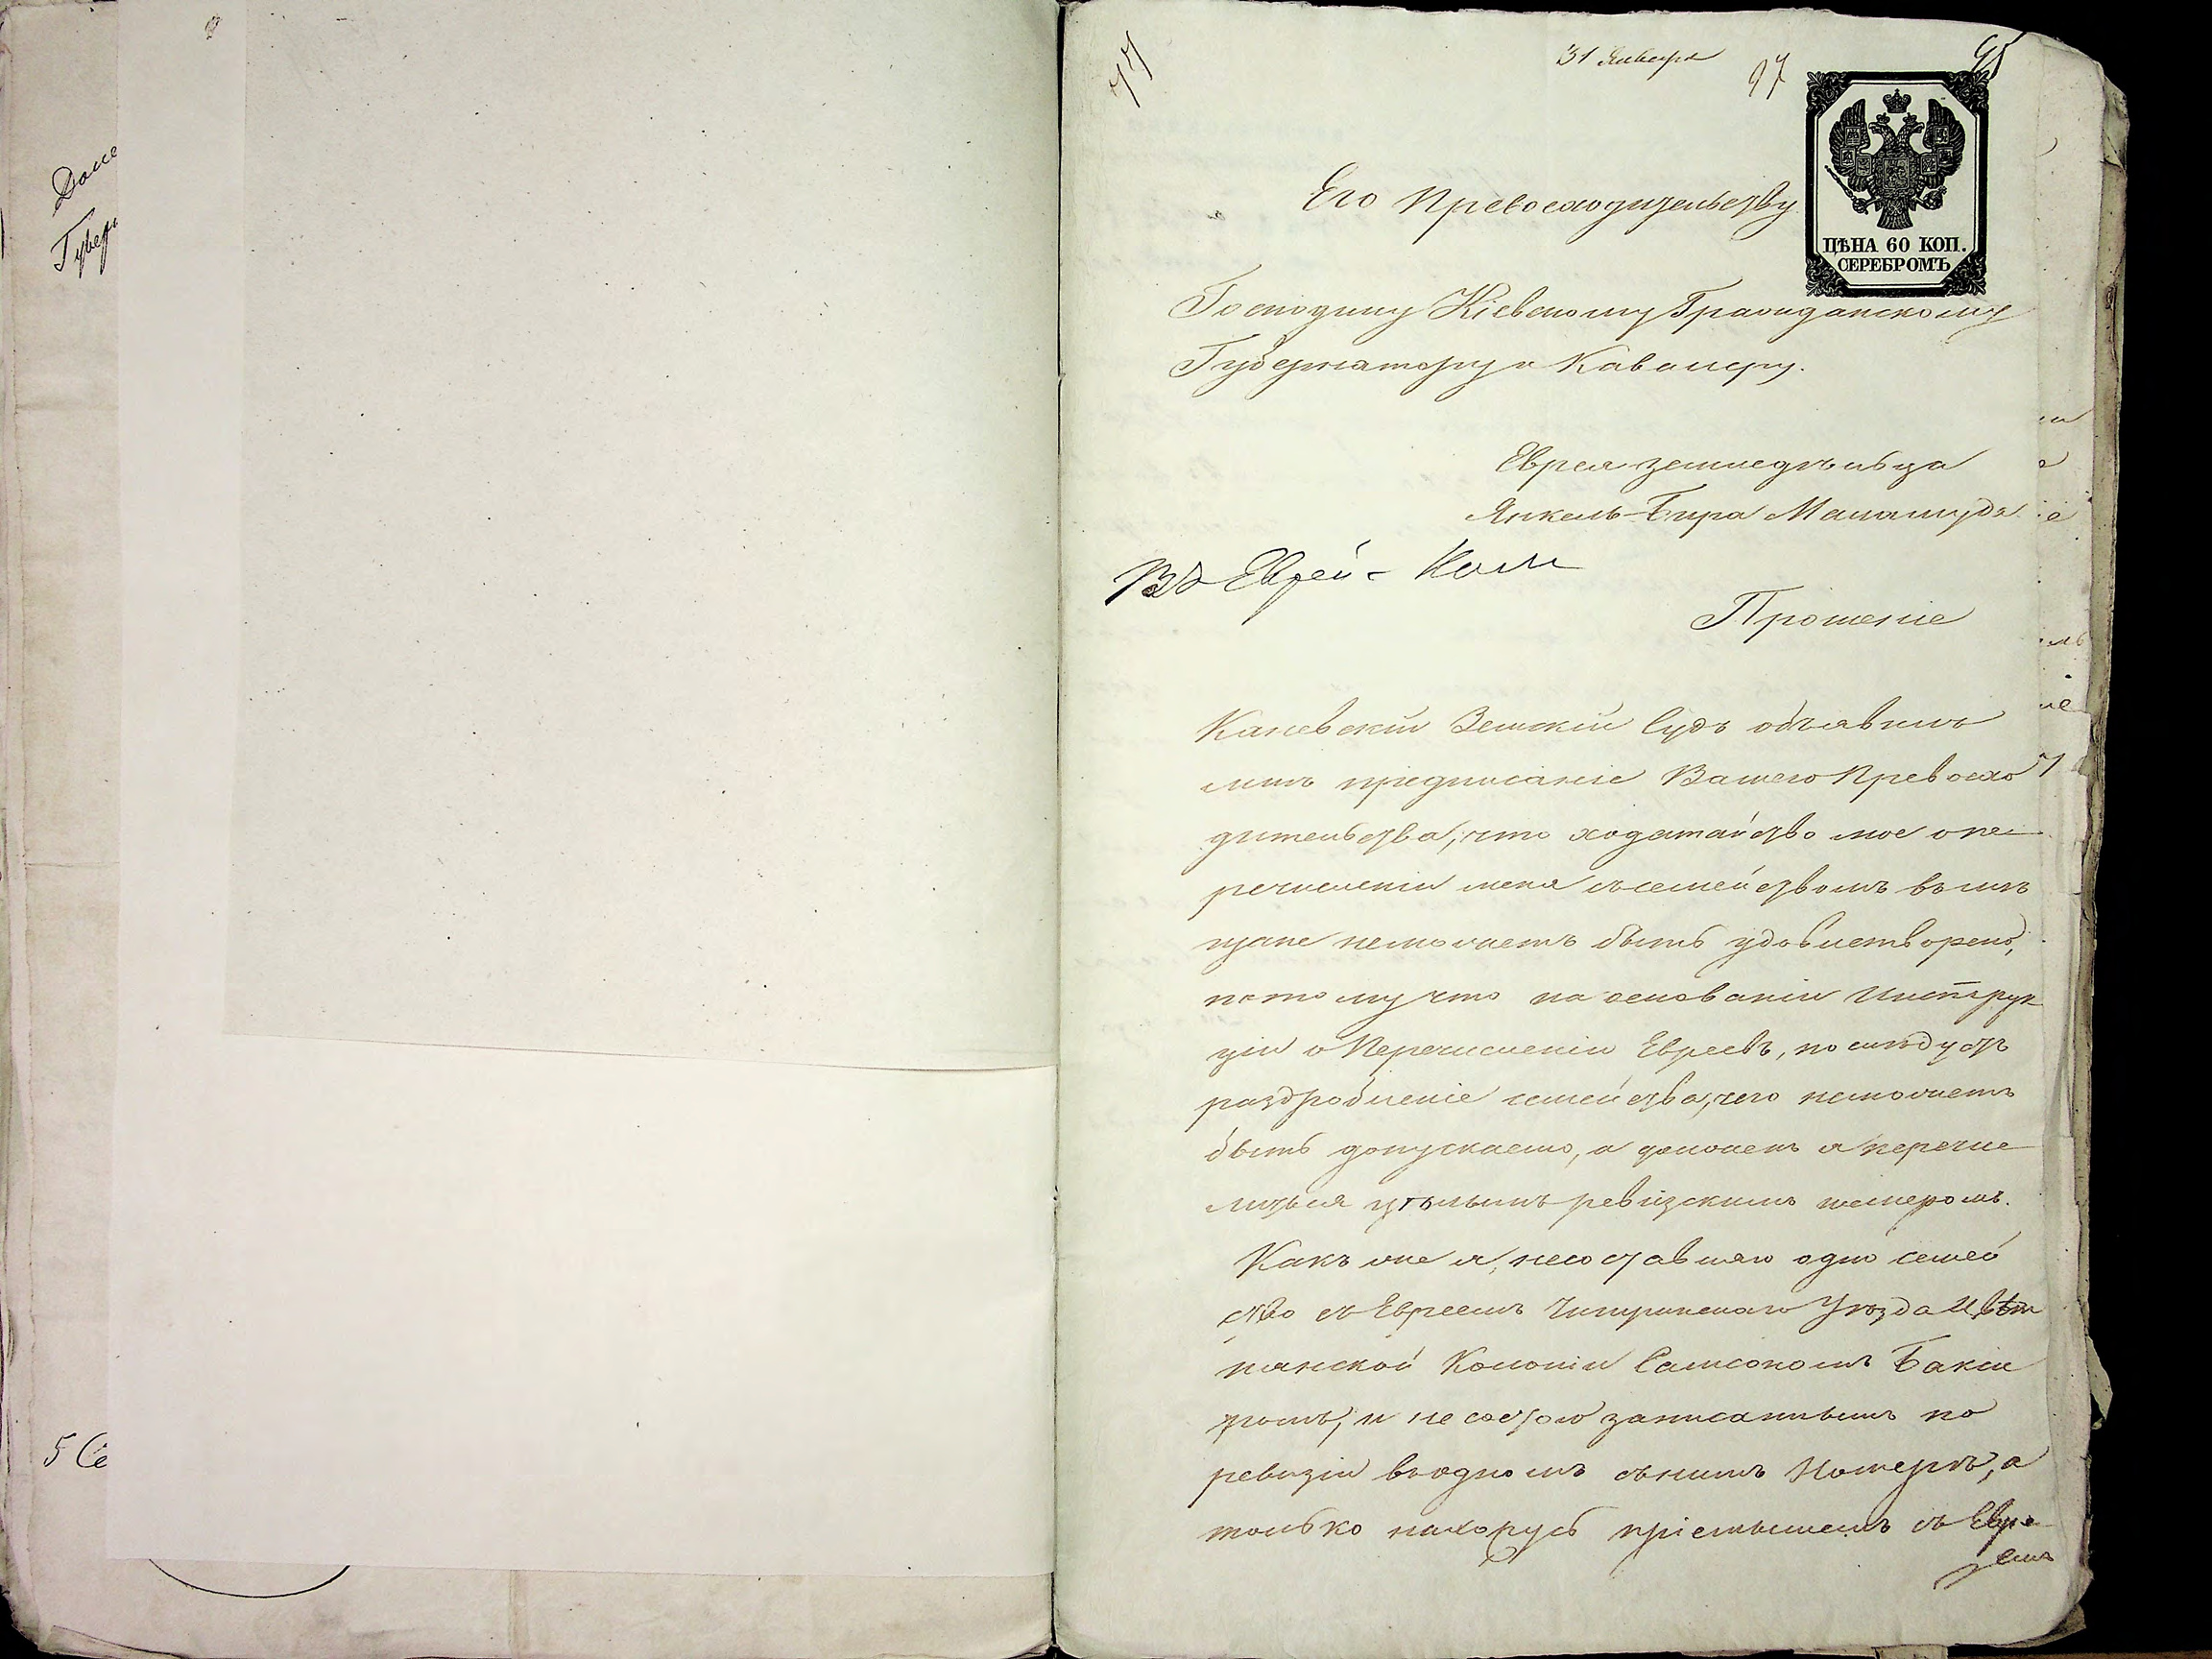 Доне
Губер
5 Се
77
31 Января
97
95
ЦѢНА 60 КОП.
СЕРЕБРОМЪ
Его Превосходительству
Господину Кіевскому Гражданскому
Губернатору и Кавалеру.
Еврея земледѣльца
Янкель-Бера
Въ Еврей-
Прошеніе
Каневскій Земскій Судъ объявилъ
мнѣ предписаніе Вашего Превосхо
дительства, что ходатайство мое о пе
речисленіи меня съ семействомъ въ мѣ
щане неможетъ быть удовлетворено,
потому что на основаніи Инструк
ціи о Перечисленіи Евреевъ, послѣдустъ
раздробленіе семейства, чего неможетъ
быть допускаемо, а долженъ я перечис
литься цѣлымъ ревизскимъ номеромъ.
Какъ же я, несоставляю одно семей
ство съ Евреемъ Чигиринскаго Уѣзда
нянской Колоніи Самсономъ Бакли
ромъ, и не состою записаннымъ по
ревизіи въ одномъ съ нимъ Номерѣ, а
только нахожусь пріемышемъ съ Евре
емъ